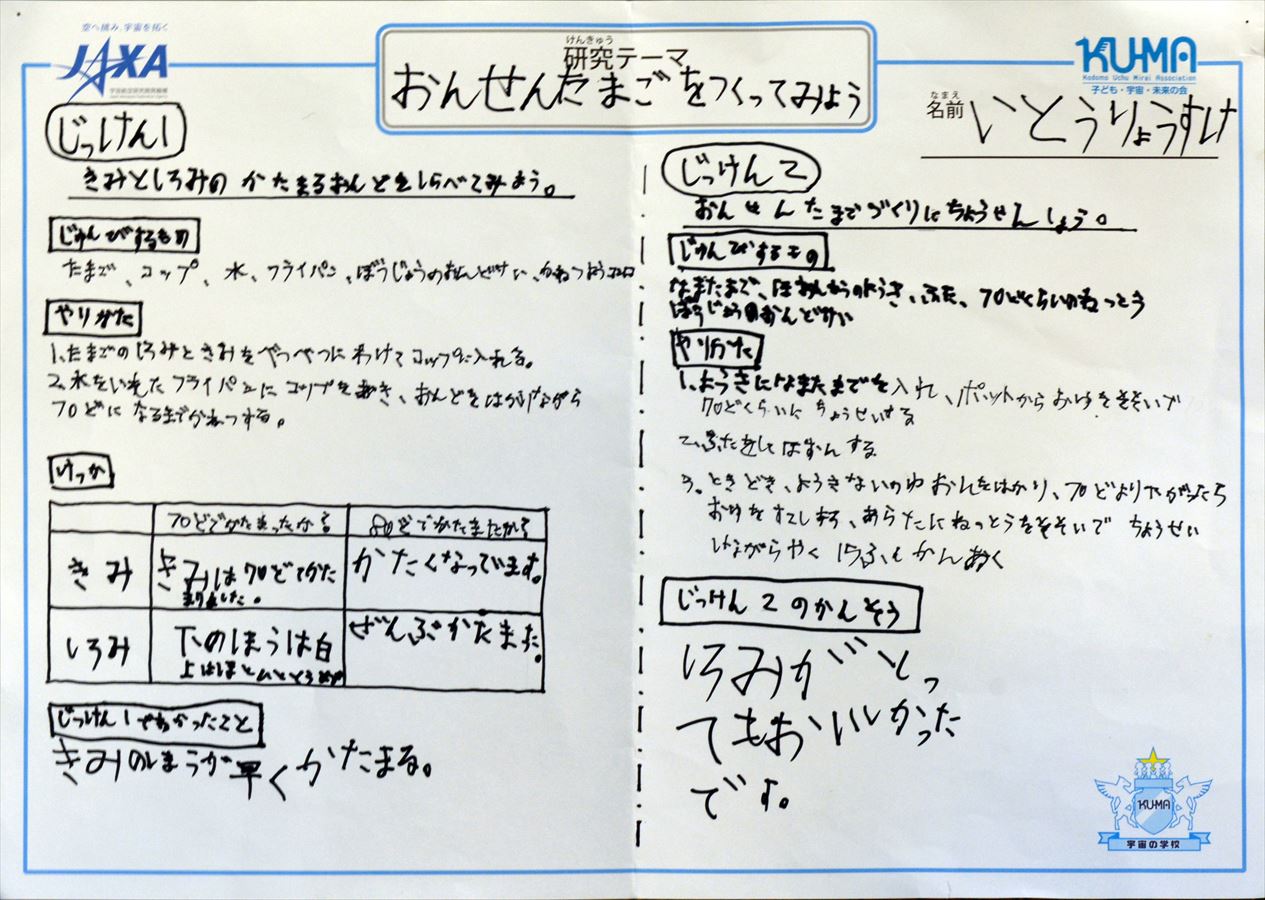 空へ挑み、宇宙を拓く
JAXA
宇宙航空研究開発機構
けんきゅう
研究テーマ
おんせんたまごをつくってみよう
KU-MA
Kodomo Uchu Mirai Association
子ども・宇宙・未来の会
なまえ
名前 いとうりょうすけ
じっけん1
きみとしろみの かたまるおんどをしらべてみよう。
じゅんびするもの
たまご、コップ、水、フライパン、ぼうじょうのおんどけい、かねつようコンロ
やりかた
1、たまごのしろみときみをべつべつにわけてコップに入れる。
2、水をいれたフライパンにコップをおき、おんどをはかりながら
70どになるまでかねつする。
けっか
70どでかたまったか? 80どでかたまたか?
きみ きみは70どでかた かたくなっています。
まりました。
しろみ 下のほうは白 ぜんぶかたまた。
上はほとんどとうめい
じっけん1でわかったこと
きみのほうが早くかたまる。
じっけん2
おんせんたまごづくりにちょうせんしよう。
じゅんびするもの
なまたまご、ほおんようのようき、ふた、70どくらいのねっとう
ぼうじょうのおんどけい
やりかた
1、ようきになまたまごを入れ、ポットからおゆをそそいで
70どくらいにちょうせいする
2、ふたをしてほおんする
3、ときどき、ようきないのゆおんをはかり、70どよりたがったら
おゆをすてします、あらたにねっとうをそそいで ちょうせい
しながらやく15ふんかんおく
じっけん2のかんそう
しろみがとっ
てもおいしかった
です。
KU-MA
宇宙の学校